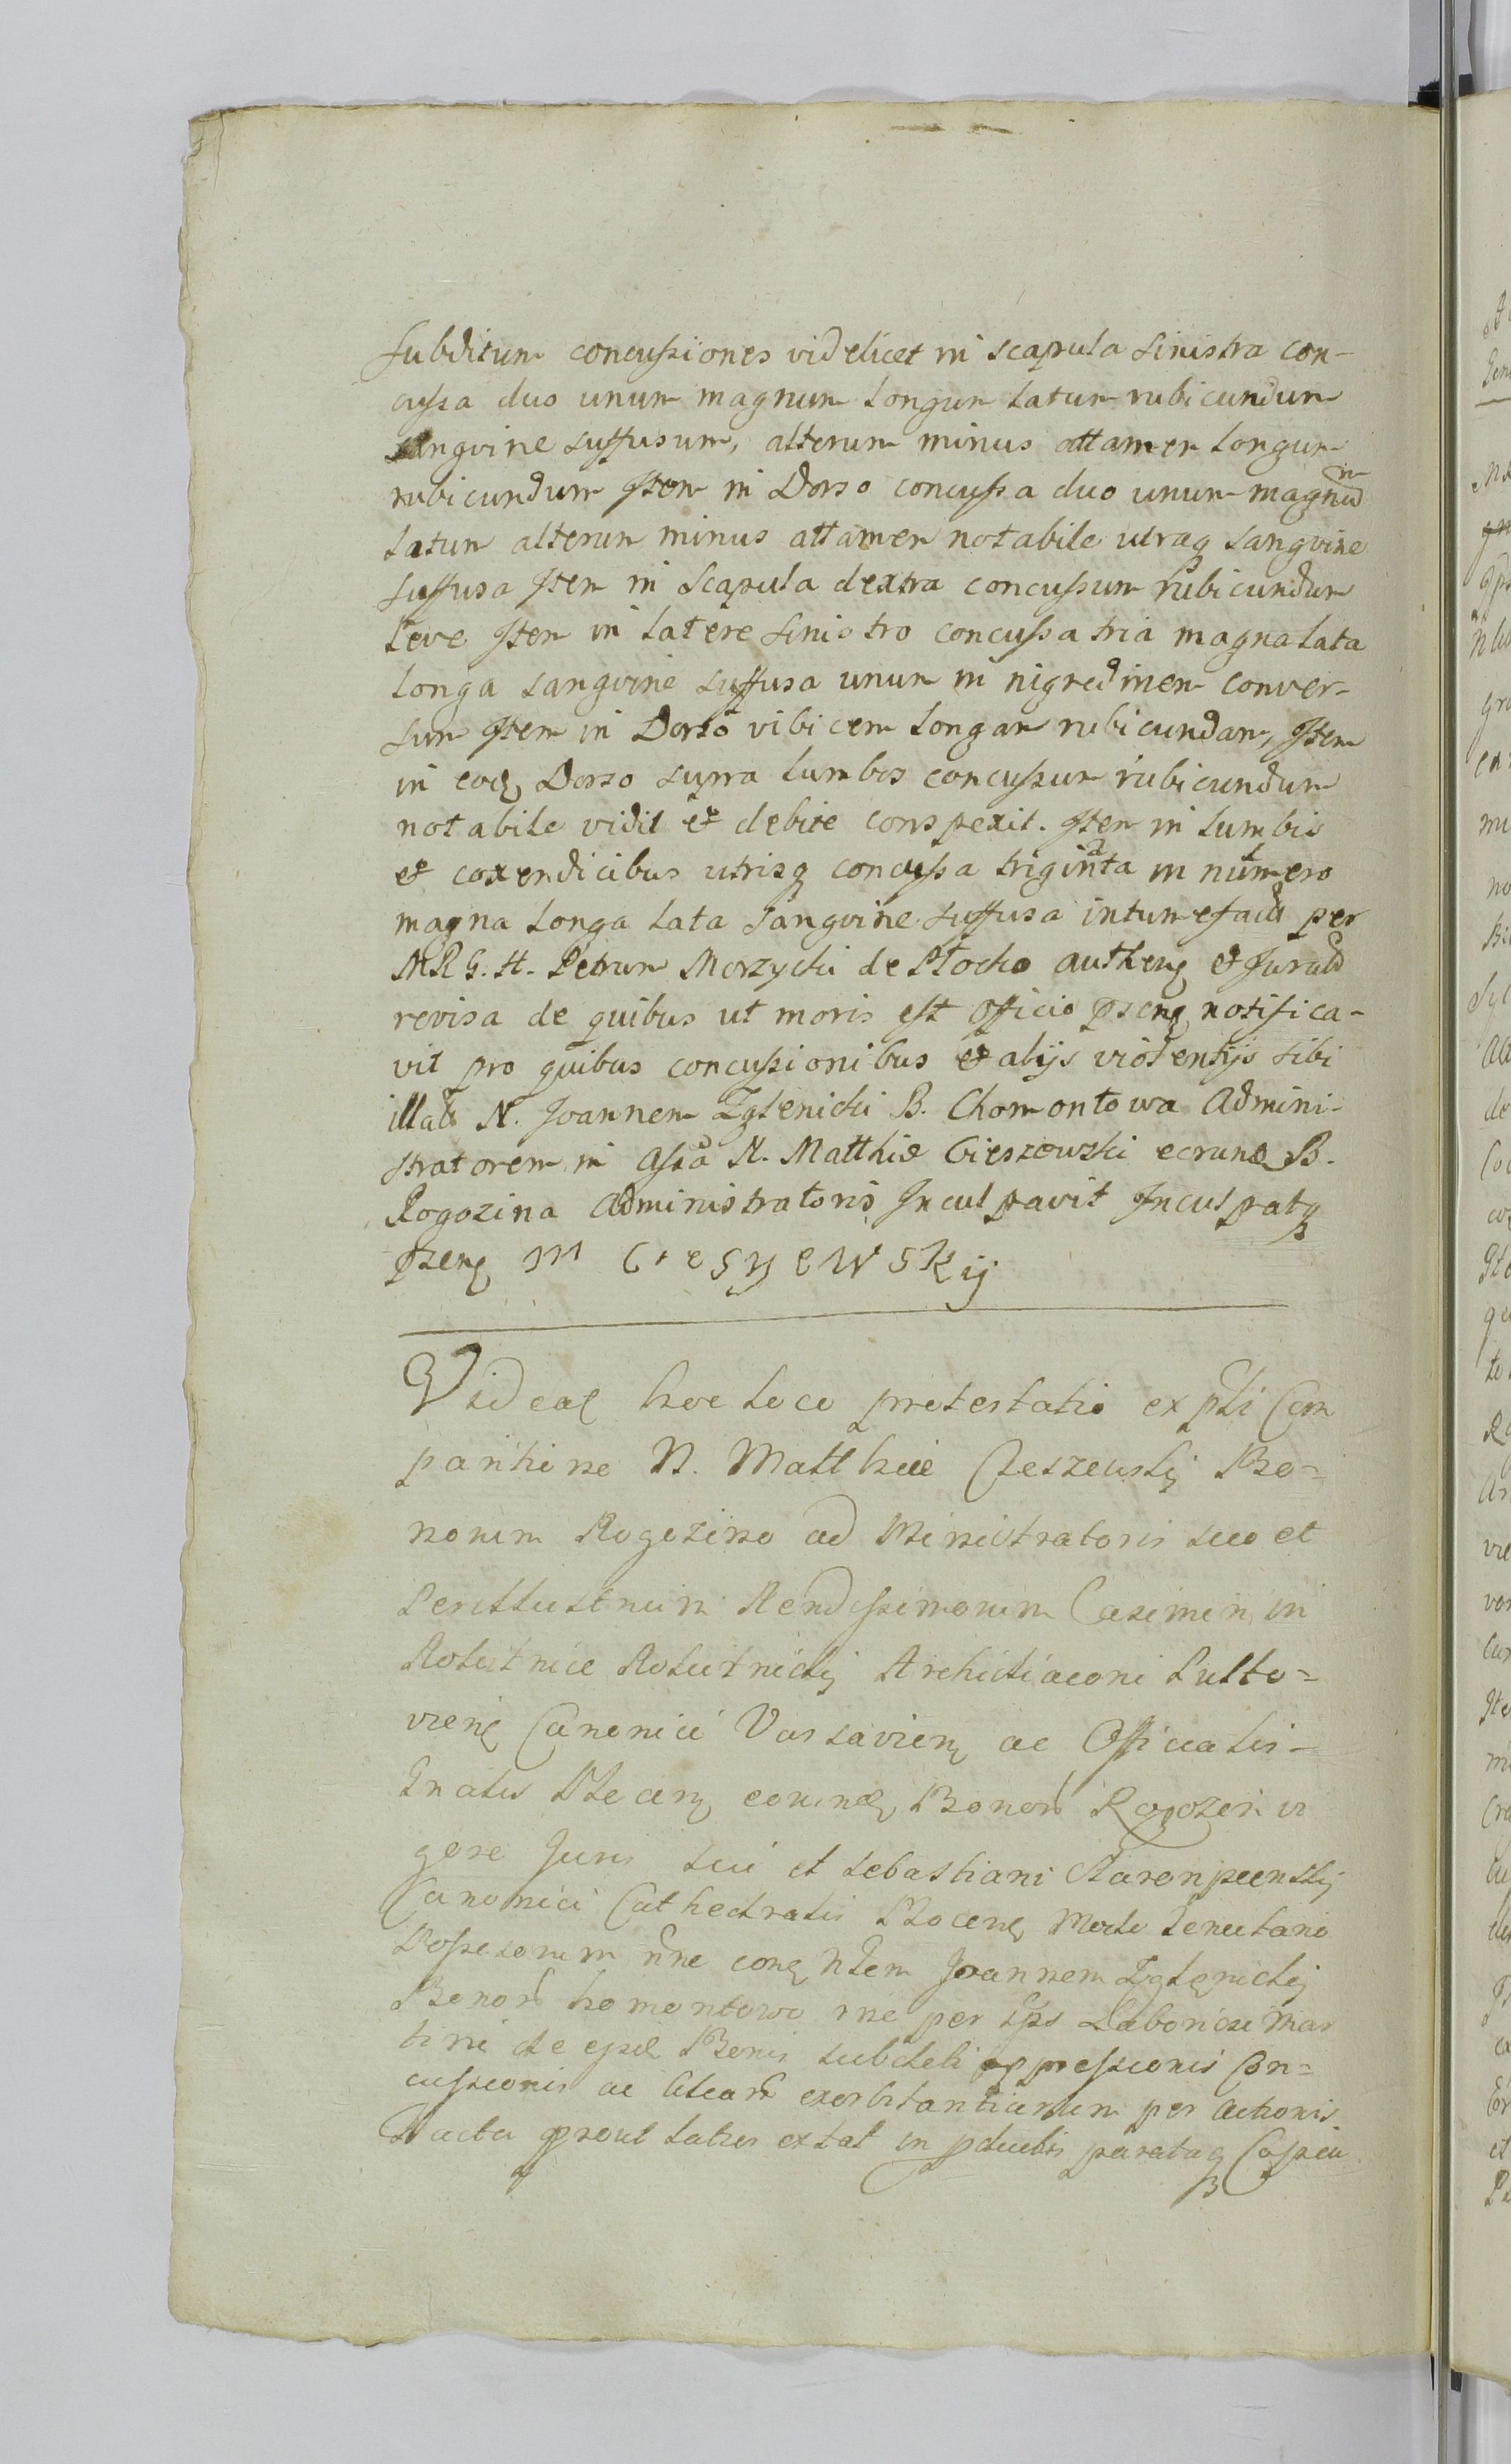 subditum concussiones videlicet in scapula sinistra con-
cussa duo unum magnum longum latum rubicundum
sangvine suffusum, alterum minus attamen longum
rubicundum Item in Dorso concussa duo unum magnum
latum alterum minus attamen notabile utraq sangvine
suffusa Item in Scapula dextra concussum rubicundum
leve Item in latere sinistro concussa tria magna lata
longa sangvine suffusa unum in nigredinem conver-
sum Item in Dorso vibicem longam rubicundam, Item
in eod Dorso supra lumbos concussum rubicundum
notabile vidit et debite conspexit. Item in lumbis
et coxendicibus utrisq concussa triginta in numero
magna longa lata sangvine suffusa intumefacta per
MRG. H. Petrum Morzycki de Plocko authen et Jurat
revisa de quibus ut moris est officio psen notifica-
vit pro quibus concussionibus et alijs violentijs sibi
illatis N. Joannem Zglenicki B. Chomontowa Admini-
stratorem in assa N. Matthiæ Cieszewski eorund B.
Rogozina Administratoris Inculpavit Inculpatq
psen M Ciesyewskij
Videat hoc loco protestatio ex pti Com
paritione N. Matthiæ Cieszewskij Bo-
norum Rogozino ad Ministratoris suo et
Perillustrium Rendissimorum Casimiri in
Rolutnice Archidiaconi Pulto-
vien Canonici Varsavien ac Officialis
Gnalis Plocen eorund Bonor Rogozin vi
gore Juris sui et Sebastiani
Canonici Cathedralis Plocen Modo Tenutario
Possesorum nne con Ntem Joannem Zglenickij
Bonor homontowo rne per Laboriosi Mar
tini de eisd Bonis subditi oppressionis Con-
cussionis ac aliar exorbitantiarum per Actionis
facta prout latius extat in ptulis parataq Copia